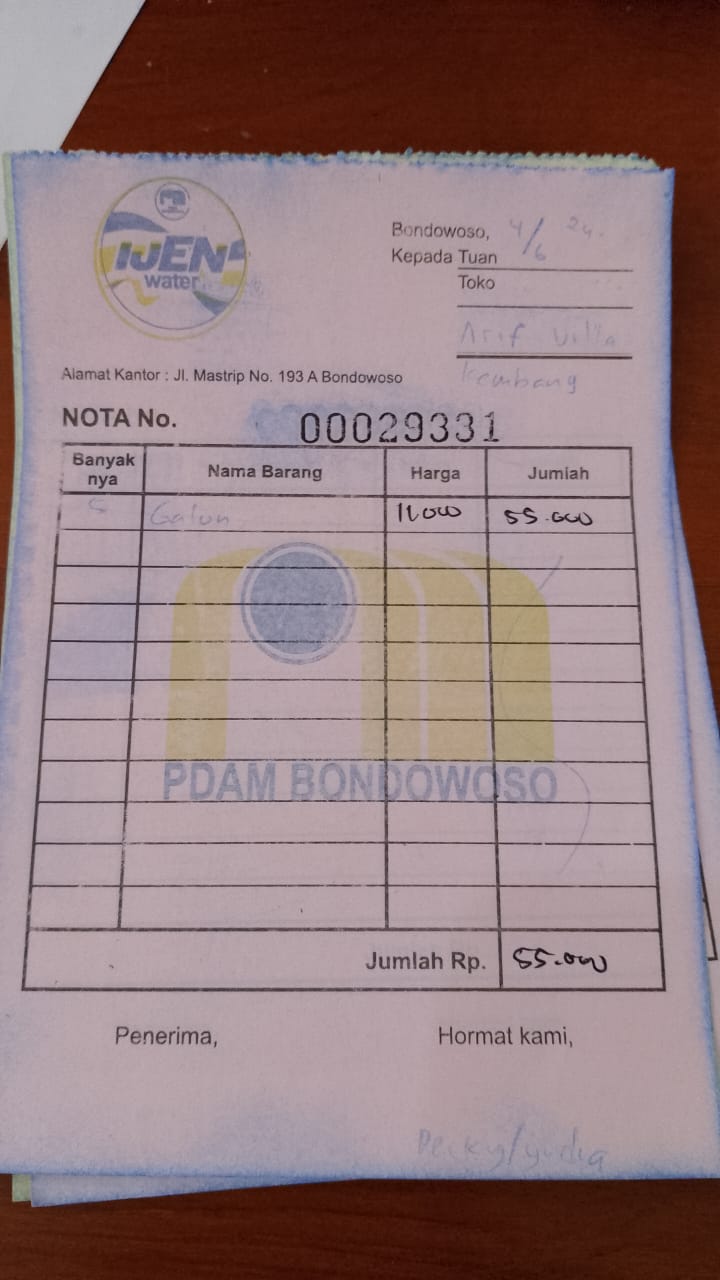 IJEN
water
Bondowoso, 4/6 24.
Kepada Tuan
Toko
Arif Villa
Kembang
Alamat Kantor : Jl. Mastrip No. 193 A Bondowoso
NOTA No. 00029331
Banyak nya Nama Barang Harga Jumlah
5 Galon 11.000 55.000
PDAM BONDOWOSO
Jumlah Rp. 55.000
Penerima, Hormat kami,